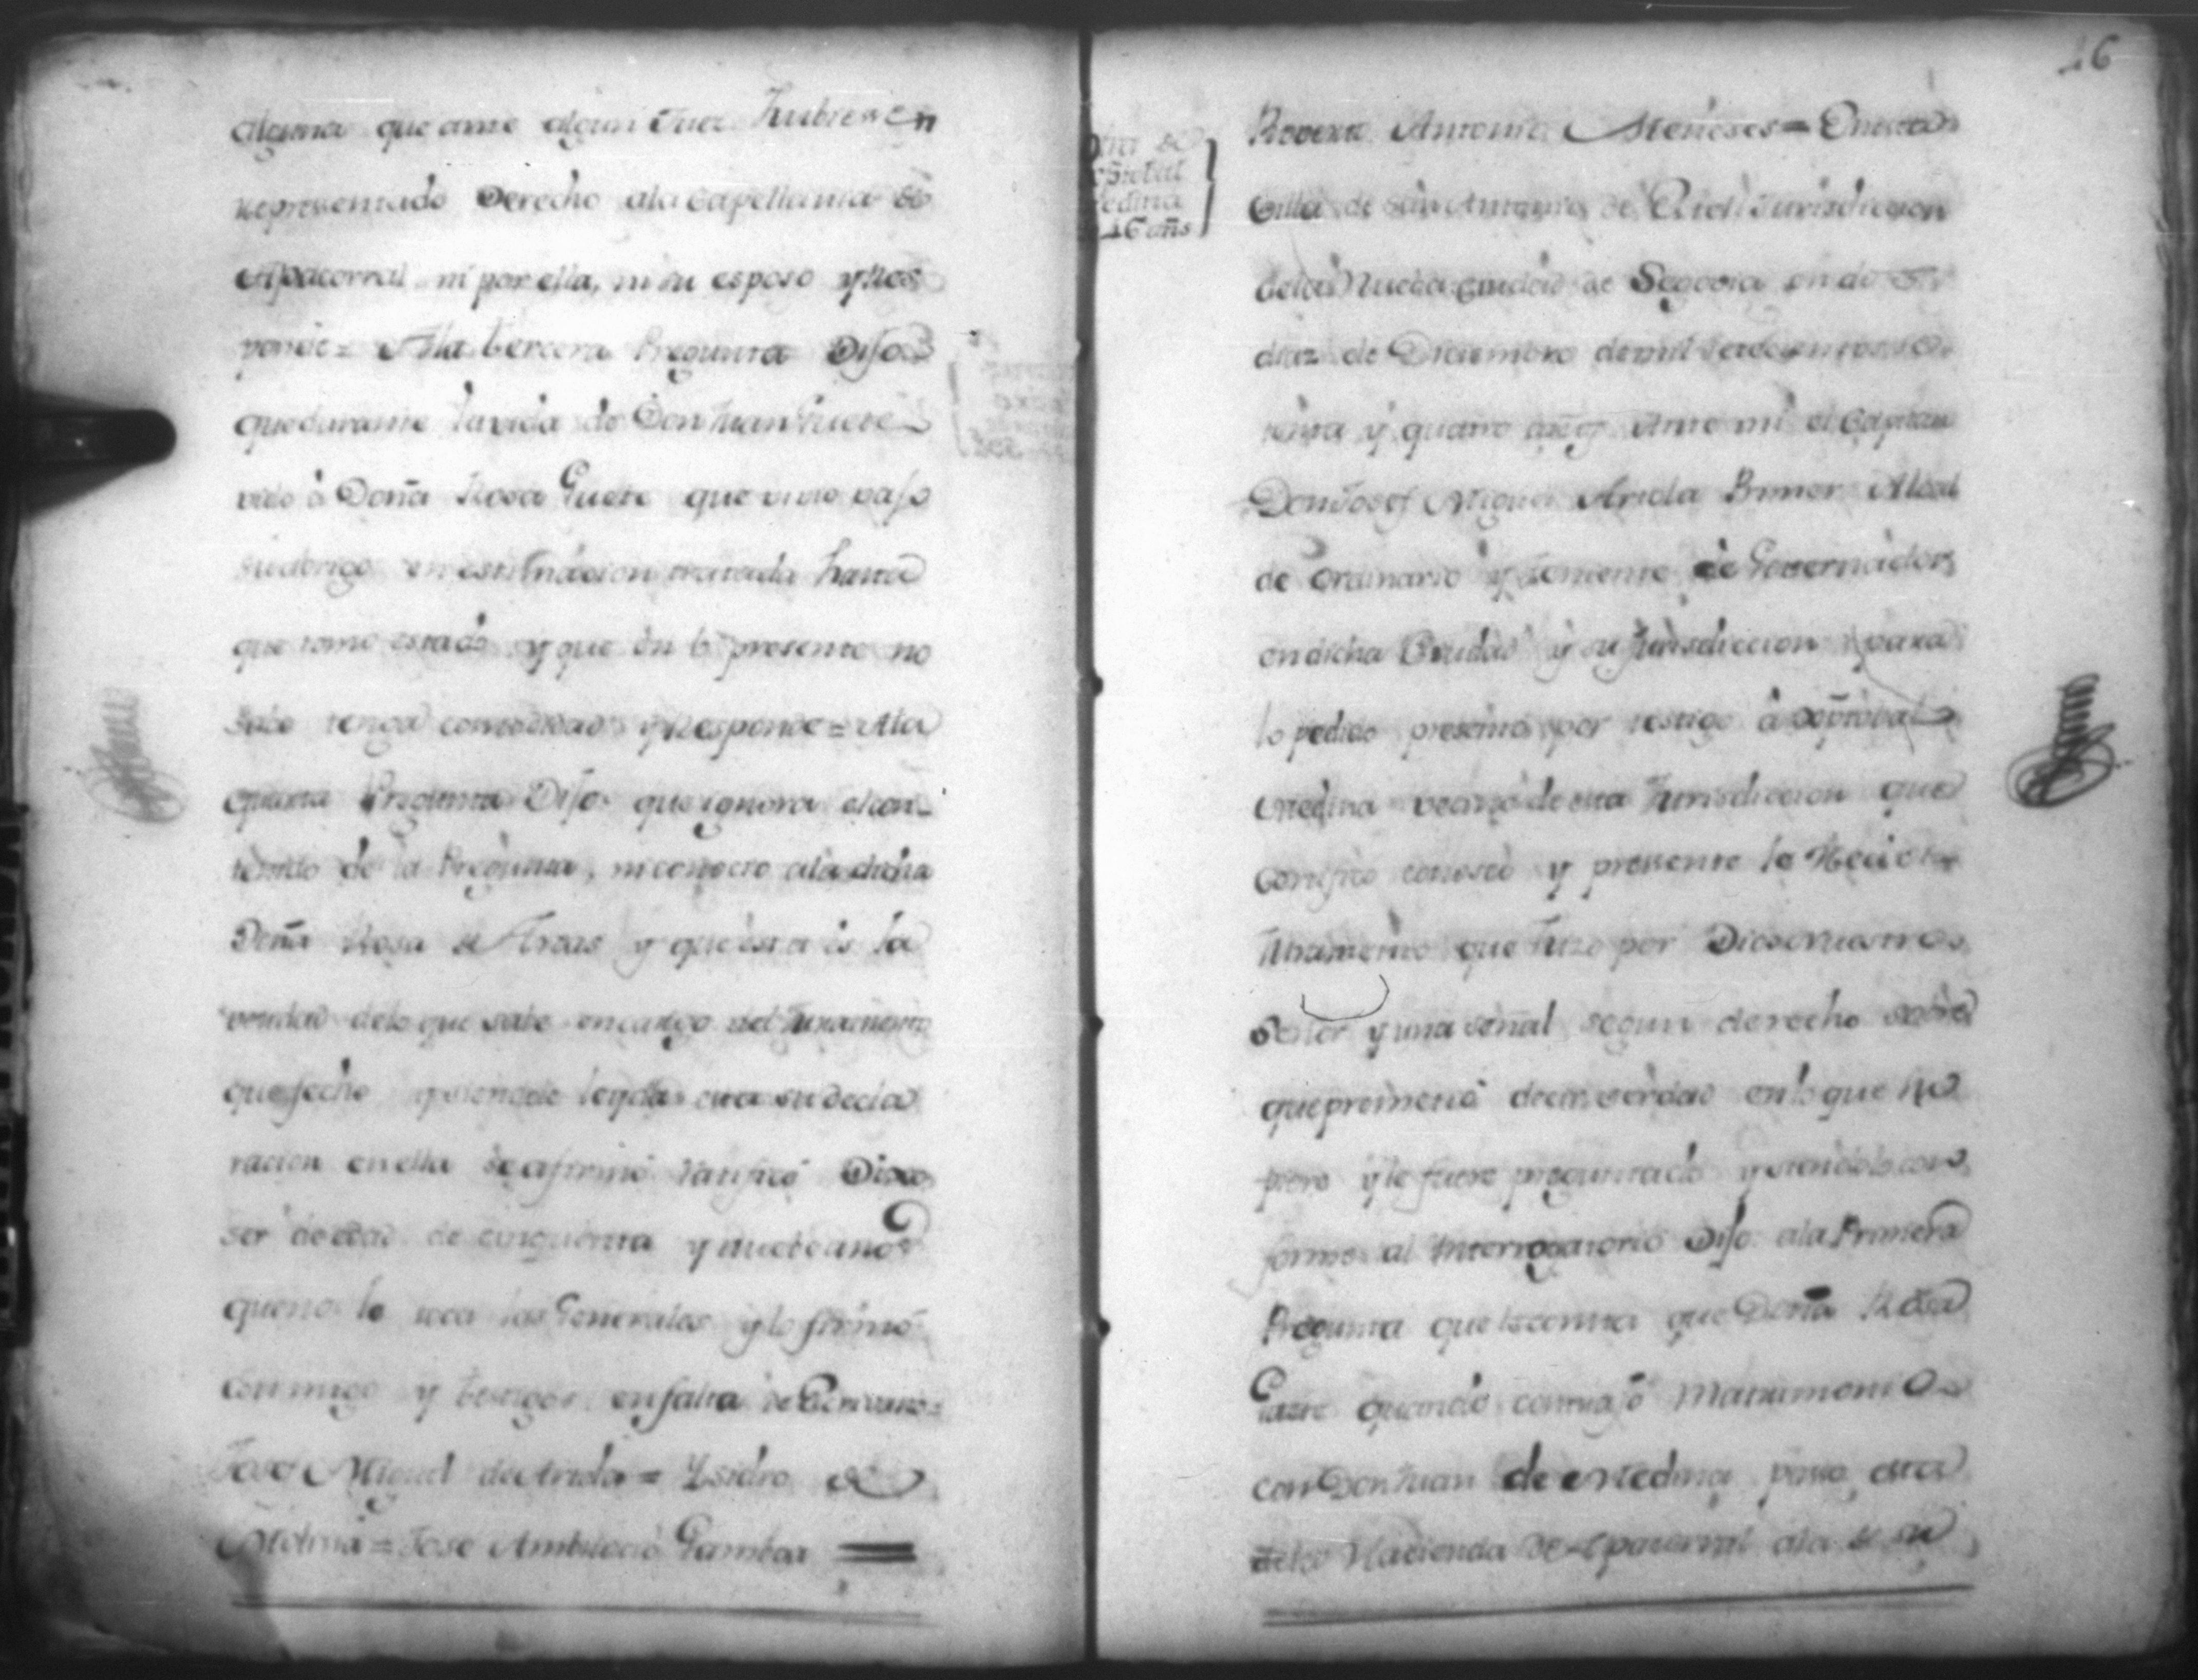 alguna que ante algun Juez hubiesen
representado Derecho ala Capellania de
Apacorral ni por ella, ni su esposo y Res
ponde = Ala tercera Pregunta Dijo
que durante la vida de Don Juan Guete
vido á Doña Rosa Guete que vivio vajo
su abrigo en estimacion tratada hasta
que tomo estado y que en lo presente no
sabe tenga comodidad y Responde = Ala
quarta Pregunta Dijo que ignora el con-
tenido de la Pregunta, ni conocio ala dicha
Doña Rosa de Arzas y que esta es la
verdad delo que sabe en cargo del Juramento
que fecho y siendole leyda esta su decla
racion en ella se afirmó ratificó Dixo
ser de edad de cinquenta y nuebe años
que no le toca las Generales y lo firmó
conmigo y testigos en falta de Escrivano =
Jose Miguel de Arriola = Ysidro de
Molina = Jose Ambrocio Gamboa =
16
de
Medina
46 añs
Antonio Meneses = En esta
Villa de San Antonio de Jurisdiccion
dela Nueba Ciudad de Segovia en
dias de Diciembre de mil setecientos se
tenta y quatro años Ante mi el Capitan
Don Josef Miguel Arriola Primer Alcal
de ordinario y Teniente de Governador
en dicha Ciudad y su Jurisdiccion para
lo pedido presentó por testigo á Xptobal
Medina vecino de esta Jurisdiccion que
Certifico conosco y presente le Recivi
Juramento que hizo por Dios nuestro
Señor y una señal segun derecho sobre
que prometió decir verdad en lo que su
piere y le fuere preguntado y siendolo con
forme al Interrogatorio Dijo ala Primera
Pregunta que le consta que Doña Rosa
Guete quando contrajo Matrimonio
con Don Juan de Medina paso esta
dela Hacienda de Apacorral ala de su